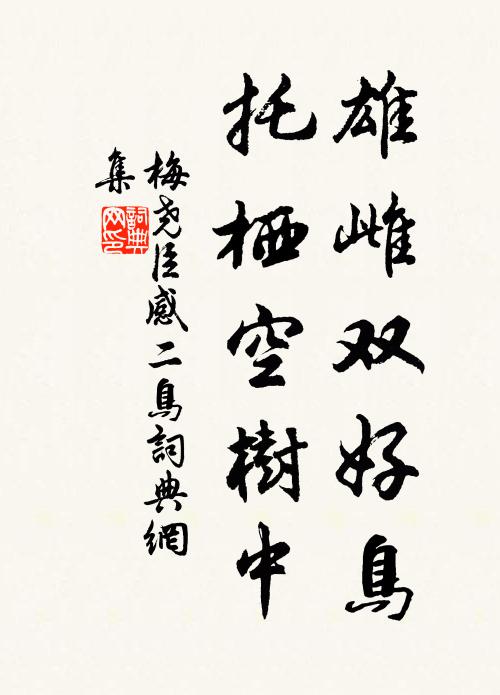 雄雌双好鳥
托栖空樹中
梅尧臣感二鳥詞典網
集
詞典网印